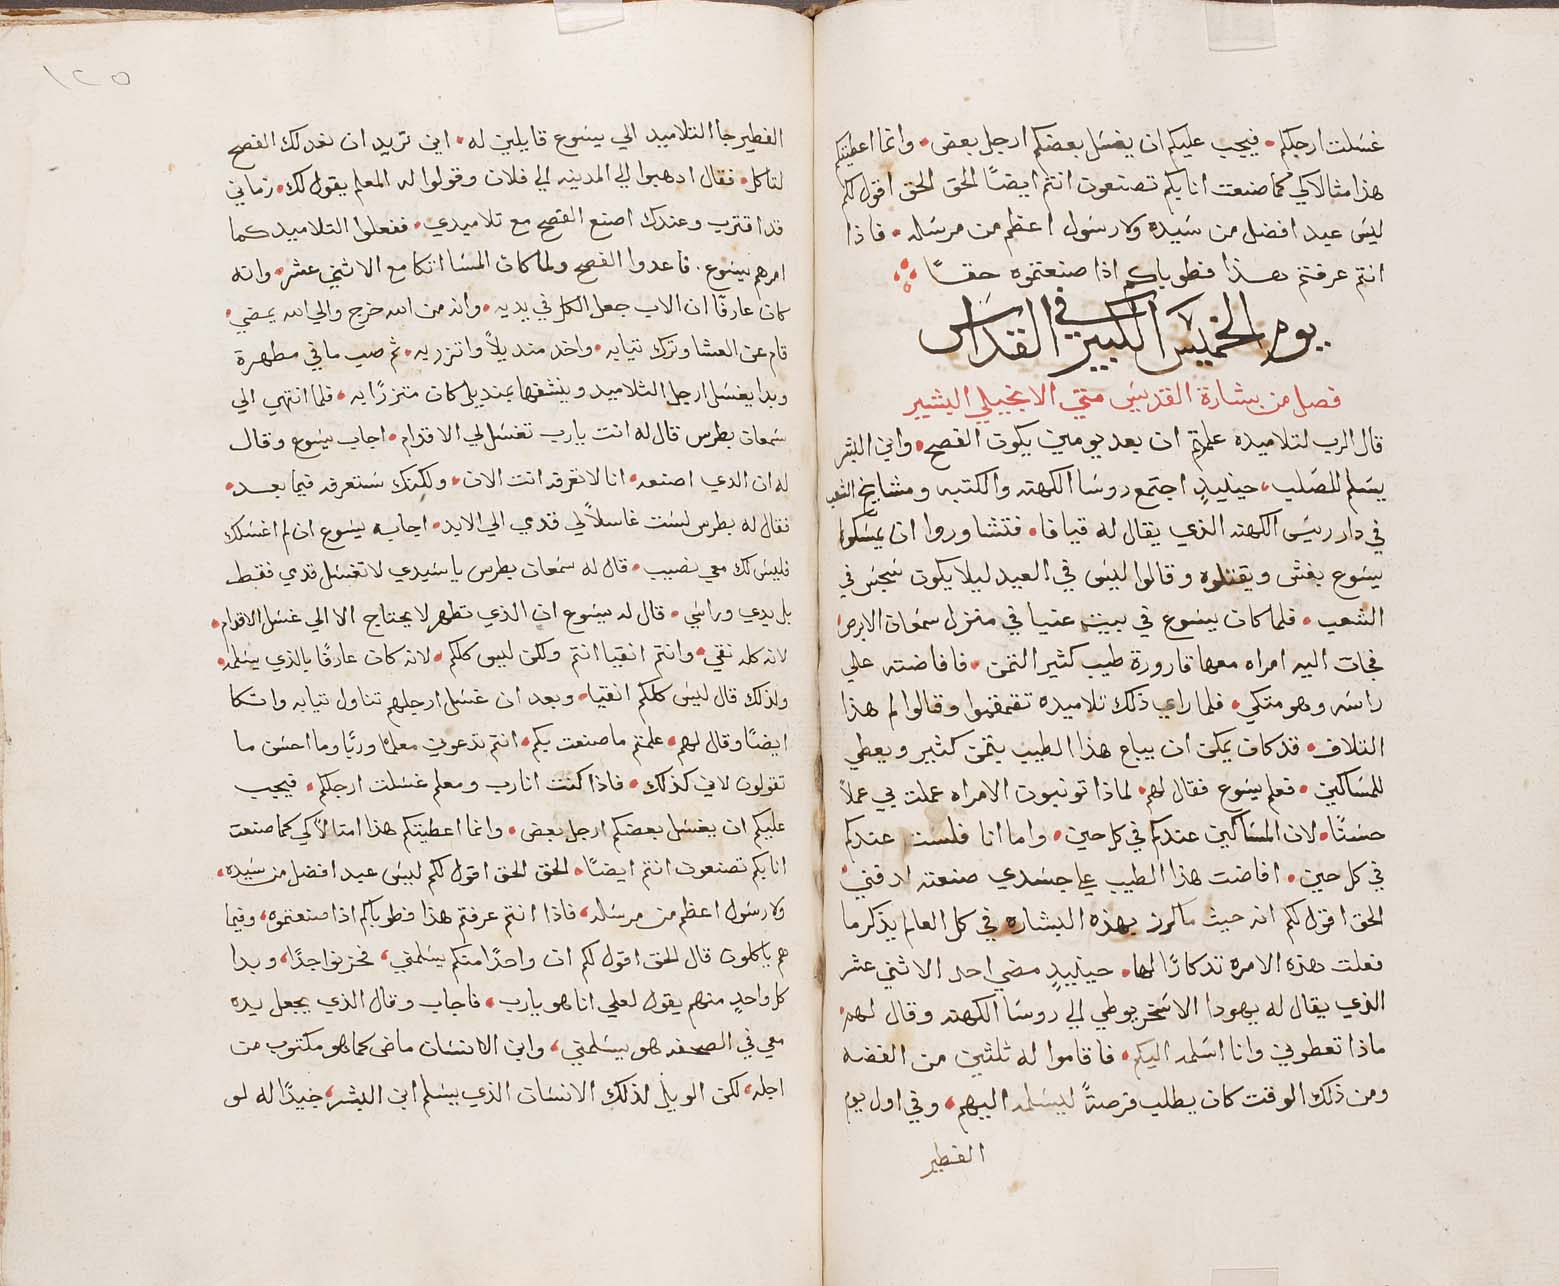 غسلت ارجلكم. فيجب عليكم ان يغسل بعضكم ارجل بعض. وانما اعطيتكم
هذا مثالا لكي كما صنعت انا بكم تصنعون انتم ايضًا الحق الحق اقول لكم
ليس عبد افضل من سيده ولا رسول اعظم من مرسله. فاذا
انتم عرفتم هذا فطوباكم اذا صنعتموه حقًا
يوم الخميس الكبير في القداس
فصل من بشارة القديس متي الانجيلي البشير
قال الرب لتلاميذه علمتم ان بعد يومين يكون الفصح. وابن البشر
يسلم للصلب، حينيدٍ اجتمع روسا الكهنه والكتبه ومشايخ الشعب
في دار ريس الكهنه الذي يقال له قيافا. فتشاوروا ان يمسكوا
يسوع بغش ويقتلوه وقالوا ليس في العيد ليلا يكون سجس في
الشعب. فلما كان يسوع في بيت عنيا في منزل سمعان الابرص
فجات اليه امراه معها قارورة طيب كثير الثمن. فافاضته علي
راسه وهو متكي. فلما راي ذلك تلاميده تقمقموا وقالوا لم هذا
التلاف. قد كان يمكن ان يباع هذا الطيب بثمن كثير ويعطي
للمساكين. فعلم يسوع فقال لهم. لماذا تونبون الامراه عملت بي عملاً
حسنًا. لان المساكين عندكم في كل حين. واما انا فلست عندكم
في كل حين. افاضت هذا الطيب علي جسدي صنعته لدفني
الحق اقول لكم انه حيث ما كرز بهذه البشاره في كل العالم يذكر ما
فعلت هذه الامره تدكارًا لها. حينيدٍ مضي احد الاثني عشر
الذي يقال له يهودا الاسخريوطي الي روسا الكهنه وقال لهم
ماذا تعطوني وانا اسلمه اليكم. فاقاموا له ثلثين من الفضه
ومن ذلك الوقت كان يطلب فرصةً ليسلمه اليهم، وفي اول يوم
الفطير
١٢٥
الفطير جا التلاميد الي يسوع قايلين له. اين تريد ان نعد لك الفصح
لتاكل. فقال ادهبوا الي المدينه الي فلان وقولوا له المعلم يقول لك. زماني
قد اقترب وعندك اصنع الفصح مع تلاميدي. ففعلوا التلاميد كما
امرهم يسوع. فاعدوا الفصح ولما كان المسا اتكا مع الاثني عشر. وانه
كان عارفًا ان الاب جعل الكل في يديه. وانه من الله خرج والي الله يمضي.
قام عن العشا وترك تيابه. واخد منديلاً واتزر به. ثم صب ما في مطهرة
وبدا يغسل ارجل التلاميد وينشفها بمنديل كان متزرًا به. فلما انتهي الي
سمعان بطرس قال له انت يارب تغسل لي الاقدام. اجاب يسوع وقال
له ان الدي اصنعه. انا لا تعرفه انت الان. ولكنك ستعرفه فيما بعد.
فقال له بطرس لست غاسلاً لي قدمي الي الابد. اجابه يسوع ان لم اغسلك
فليس لك معي نصيب. قال له سمعان بطرس ياسيدي لا تغسل قدمي فقط
بل يدي وراسي. قال له يسوع ان الذي تطهر لا يحتاج الا الي غسل الاقدام.
لانه كله نقي. وانتم انقيا انتم ولكن ليس كلكم. لانه كان عارفًا بالذي يسلمه.
ولذلك قال ليس كلكم انقيا. وبعد ان غسل ارجلهم تناول تيابه واتكا
ايضًا وقال لهم. علمتم ما صنعت بكم. انتم تدعوني معلمًا وربًا وما احسن ما
تقولون لاني كذلك. فاذا كنت انا رب ومعلم غسلت ارجلكم. فيجب
عليكم ان يغسل بعضكم ارجل بعض. وانما اعطيتكم هذا امتالاً لكي كما صنعت
انا بكم تصنعون انتم ايضًا. الحق الحق اقول لكم ليس عبد افضل من سيده،
ولا رسول اعظم من مرسله، فاذا انتم عرفتم هذا فطوباكم اذا صنعتموه، وفيما
هم ياكلون قال الحق اقول لكم ان واحدًا منكم يسلمني، فحزنوا جدًا، وبدا
كل واحدٍ منهم يقول لعلي انا هو يارب. فاجاب وقال الذي يجعل يده
معي في الصحفه هو يسلمني، وابن الانسان ماضٍ كما هو مكتوب من
اجله، لكن الويل لذلك الانسان الذي يسلم ابن البشر، جيدًا له لو